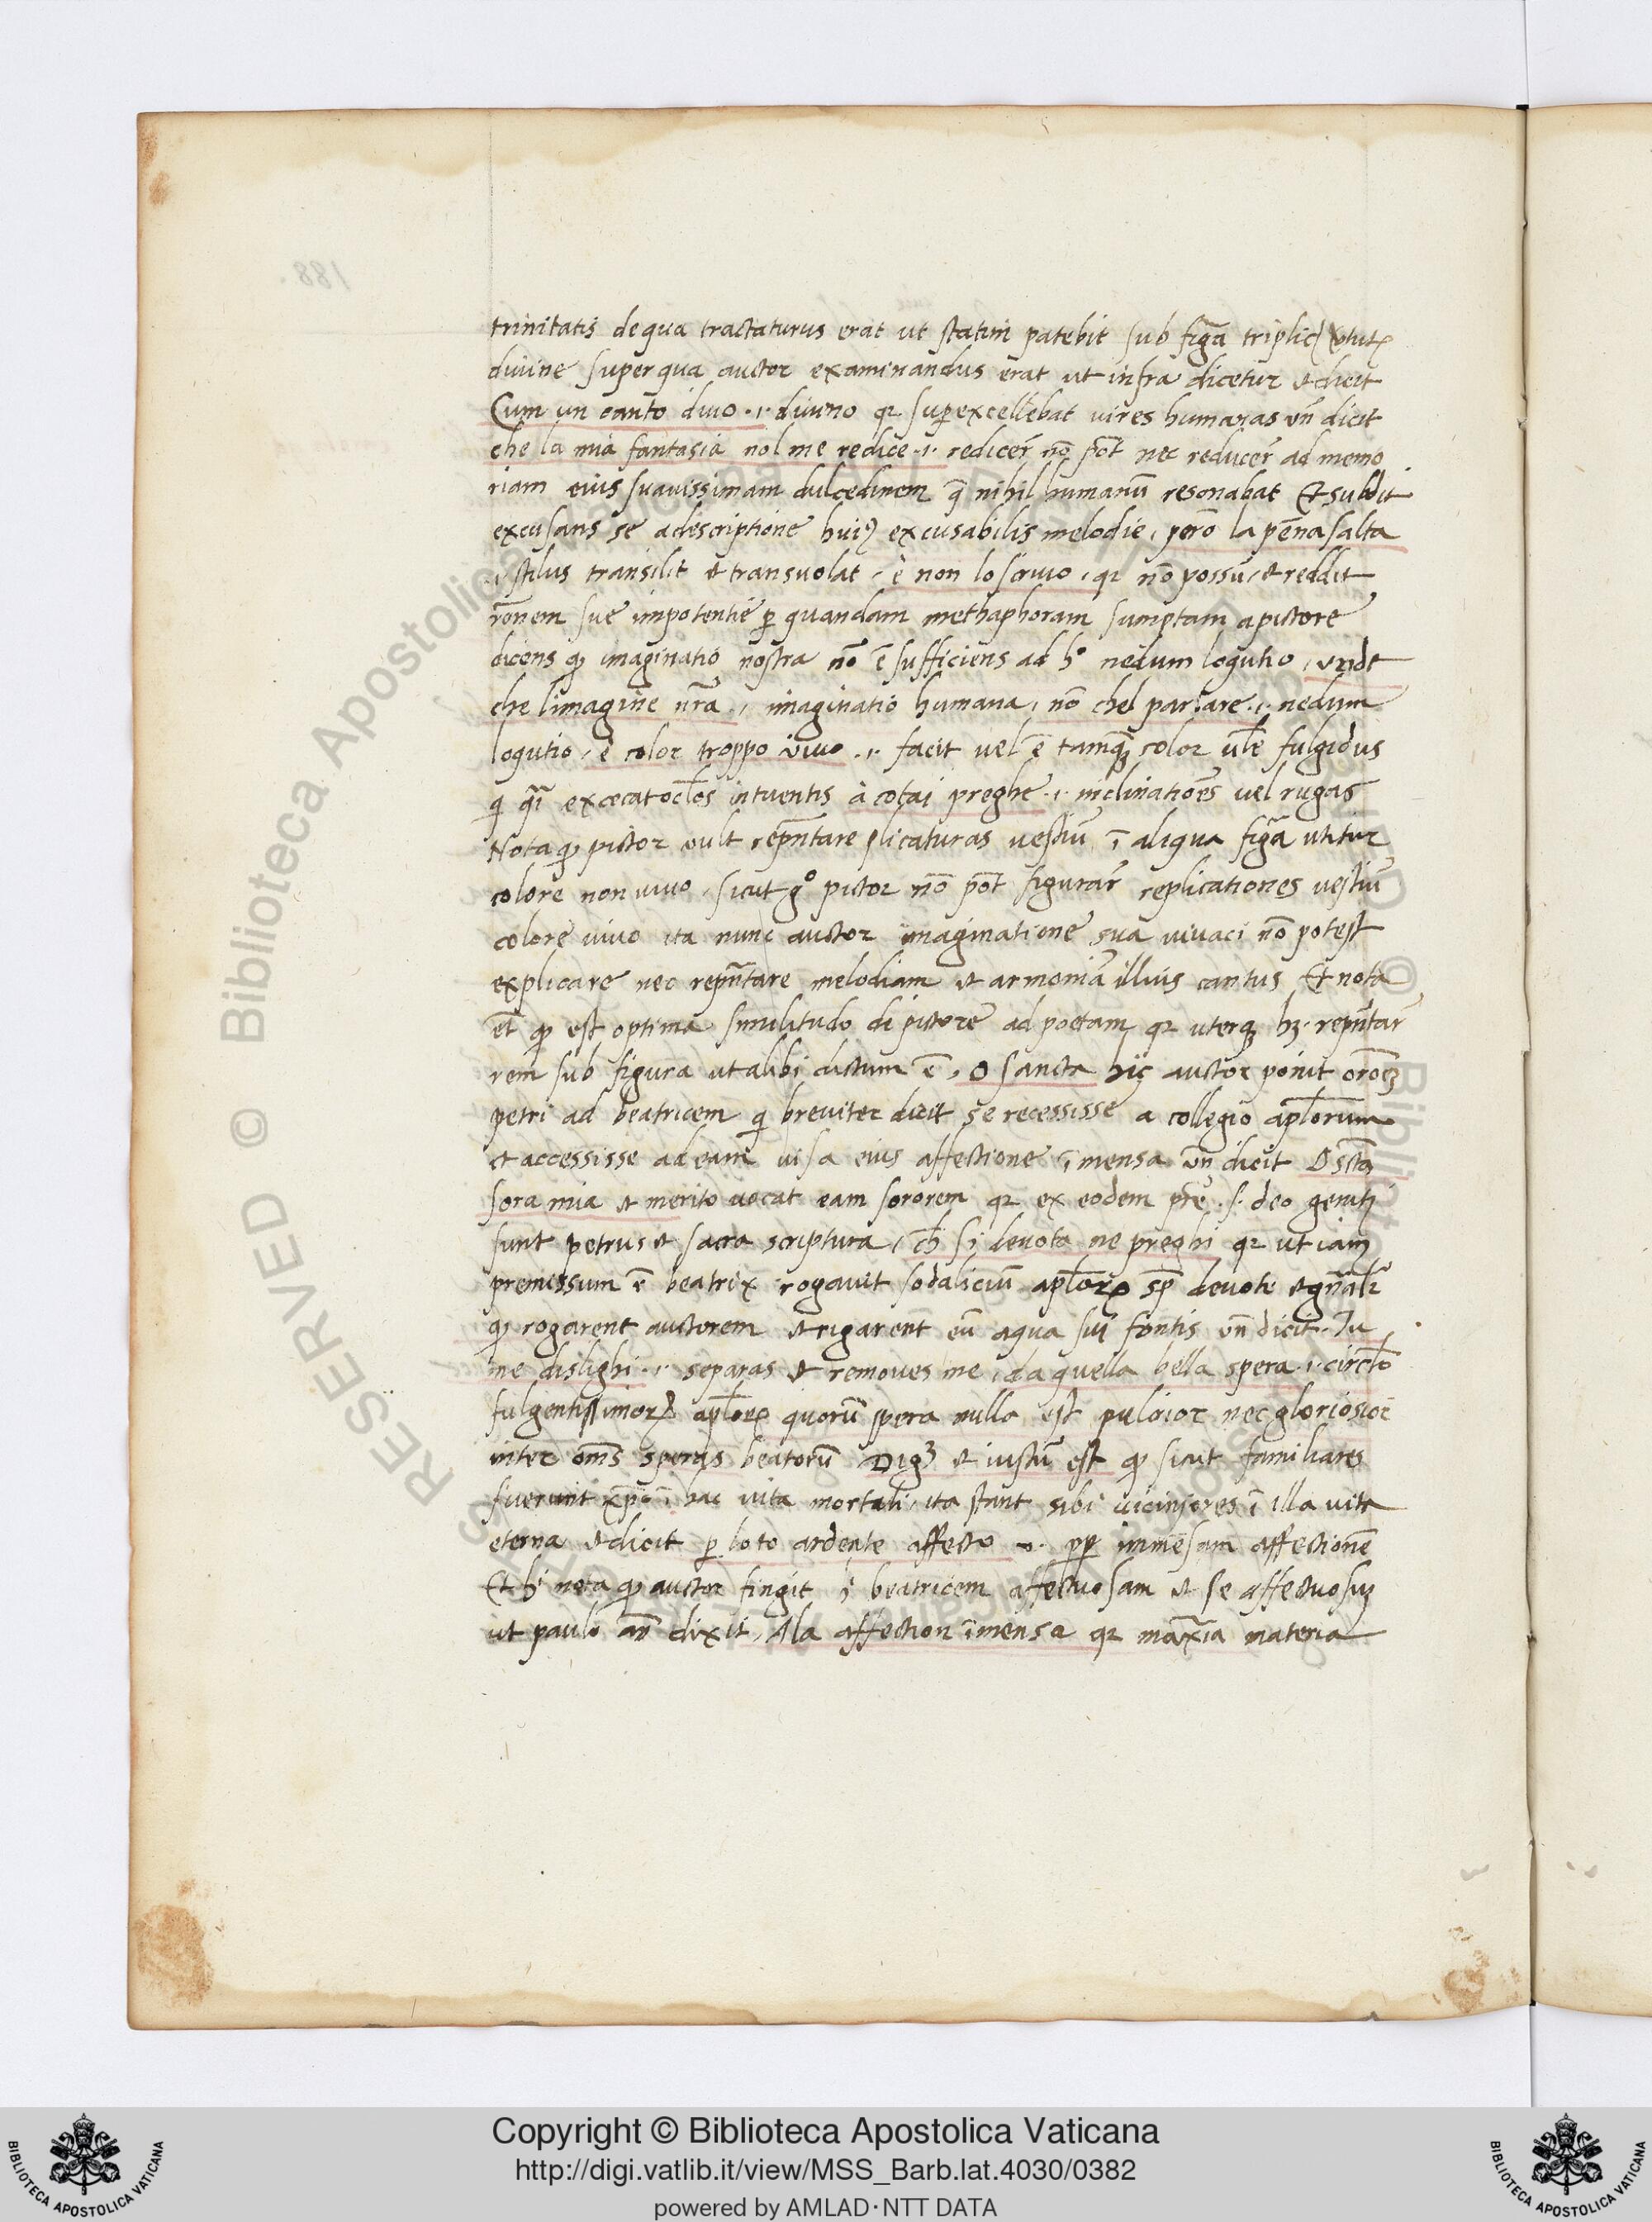 188.
trinitatis de qua tractaturus erat ut statim patebit sub figã triplic
diuine super qua auctor examinandus erat ut infra dicetur et dicit
Cum un canto diuo .i. diuino qr supexcellebat uires humanas vñ dicit
che la mia fantasia nol me redice .i. redicer nõ põt nec reducer ad memo
riam eius suauissimam dulcedinem q̃ nihil humanũ resonabat Et subdit
excusans se adescriptione hui9 excusabilis melodie, però la pẽna salta
.i. stilus transilit et transuolat, è non lo scriuo, qr nõ possũ, et reddit
rõnem sue impotentie p quandam methaphoram sumptam apictore
dicens q imaginatio nostra nõ ẽ sufficiens ad h° nedum logutio,
che limagine nr̃a .i. imaginatio humana, nõ chel parlare .i. nedum
logutio, è color troppo viuo .i. facit vel ẽ tamq̃ color vl̃e fulgidus
q qi excecat oclos intuentis à cotai preghe .i. inclinatiões vel rugas
Nota q pictor vult repñtare plicaturas uestiũ ĩ aliqua figã utitur
colore non uiuo, sicut g° pictor nõ põt figurar replicationes uestiũ
colore uiuo ita nunc auctor imaginatione sua uiuaci nõ potest
explicare nec repñtare melodiam et armoniã illius cantus Et nota
ẽt q est optima similitudo di pictore ad poetam qr uterq hz. repñtar
rem sub figura ut alibi dictum ẽ, O sancta hic auctor ponit orõẽ
petri ad beatricem q breuiter dicit se recessisse a collegio aplorum
et accessisse ad eam uisa eius affectione ĩmensa vñ dicit O scta
sora mia et merito uocat eam sororem qr ex eodem pr̃e .s. deo geniti
sunt petrus et sacra scriptura, ch si deuota ne preghi qr ut iam
premissum ẽ beatrix rogauit sodaliciũ aplor sp deuote et gñalr
q rogarent auctorem et rigarent eũ aqua sui fontis vñ dicit. Tu
me dislighi .i. separas et remoues me, da quella bella spera .i. circlo
fulgentissimor aplor quorũ spera nulla est pulcior nec gloriosior
inter oms speras beatorũ Dig3 et iustũ est q sicut familiares
fuerunt xp̃o ĩ hac uita mortali, ita stant sibi uiciniores ĩ illa uita
eterna et dicit p lo to ardente affecto .i. pp immẽsam affectionẽ
Et h nota q auctor fingit ĩ beatricem affectuosam et se affectuosuz
ut paulo añ dixit, Ala affection ĩmensa qr maxĩa materia
RESERVED © Biblioteca Apostolica Vaticana
Copyright © Biblioteca Apostolica Vaticana
http://digi.vatlib.it/view/MSS_Barb.lat.4030/0382
powered by AMLAD·NTT DATA
BIBLIOTECA APOSTOLICA VATICANA
BIBLIOTECA APOSTOLICA VATICANA